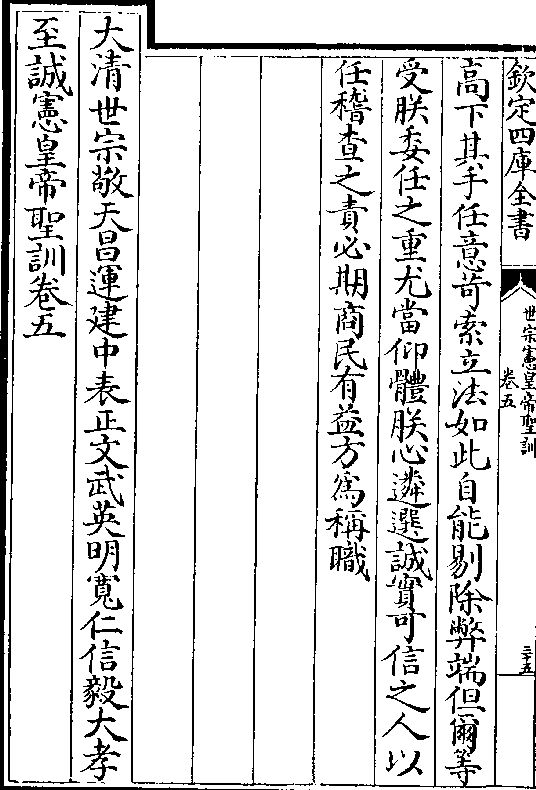 欽定四庫全書
世宗憲皇帝聖訓
卷五
三十五
高下其手任意苛索立法如此自能剔除弊端但爾等
受朕委任之重尤當仰體朕心遴選誠實可信之人以
任稽查之責必期商民有益方為稱職
大清世宗敬天昌運建中表正文武英明寬仁信毅大孝
至誠憲皇帝聖訓卷五